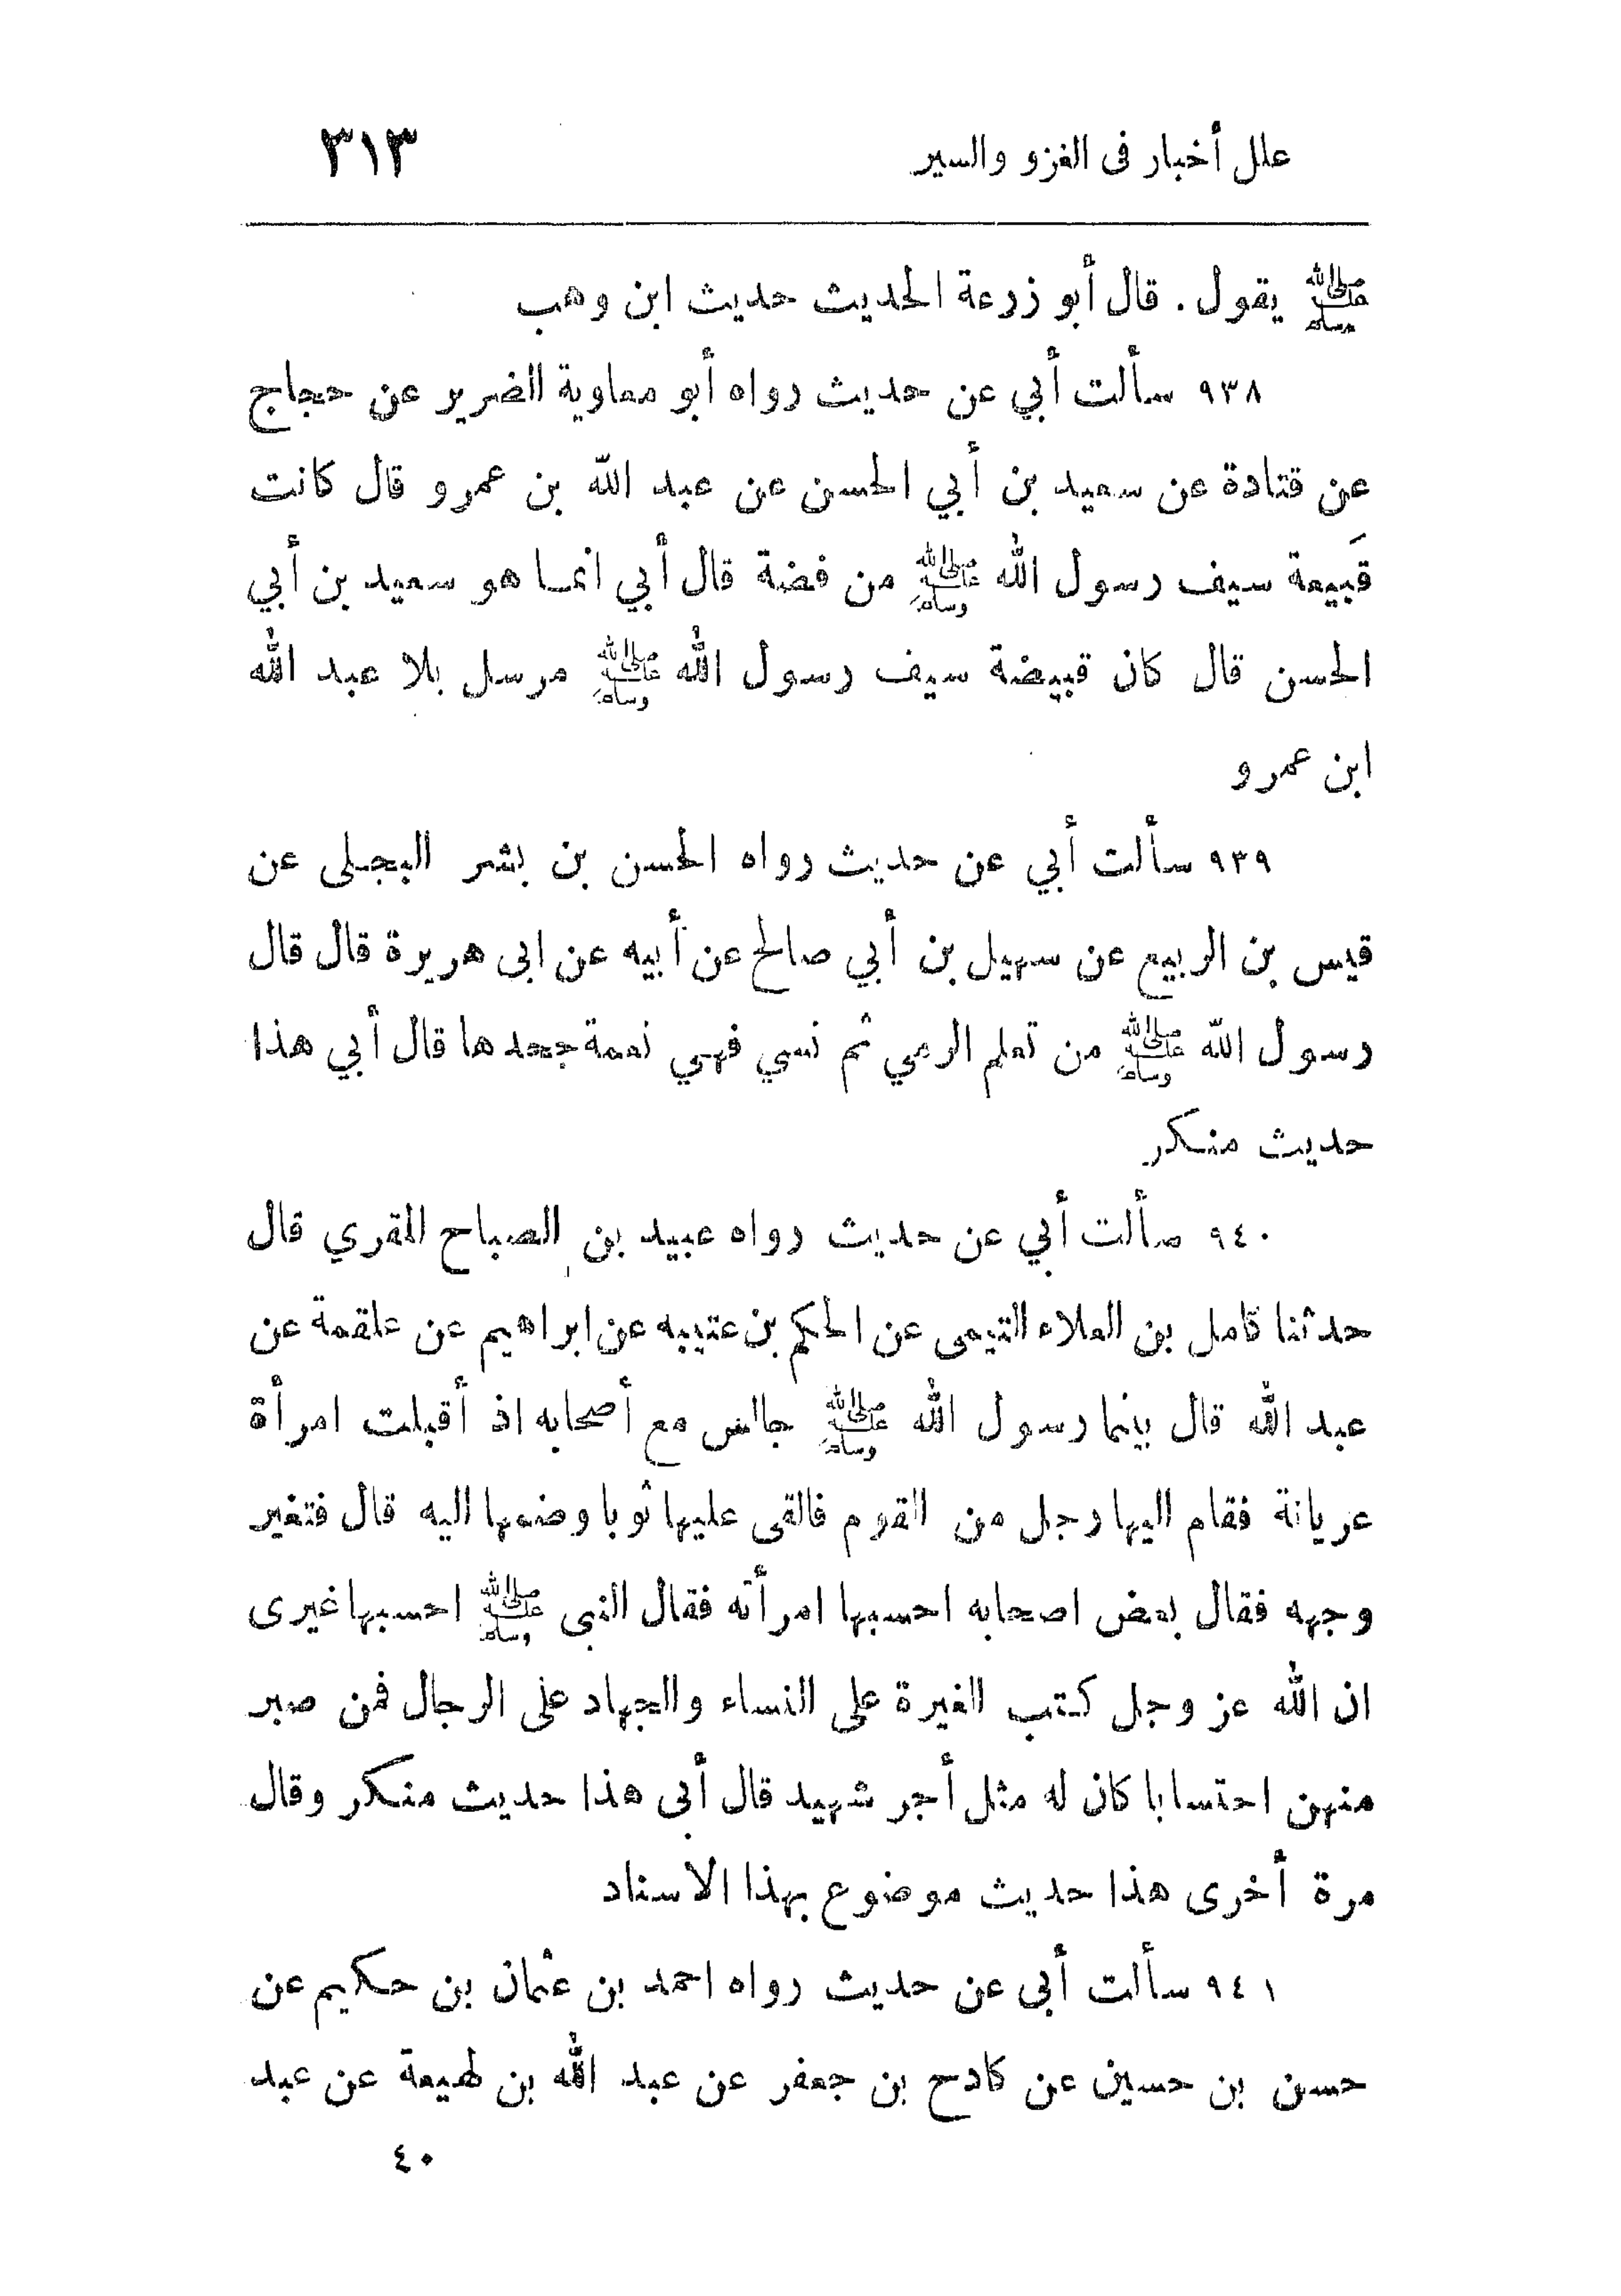 علل أخبار فى الغزو والسير ٣١٣
ﷺ يقول . قال أبو زرعة الحديث حديث ابن وهب
٩٣٨ سألت أبي عن حديث رواه أبو معاوية الضرير عن حجاج
عن قتادة عن سعيد بن أبي الحسن عن عبد الله بن عمرو قال كانت
قَبيعة سيف رسول الله ﷺ من فضة قال أبي انما هو سعيد بن أبي
الحسن قال كان قبيضة سيف رسول الله ﷺ مرسل بلا عبد الله
ابن عمرو
٩٣٩ سألت أبي عن حديث رواه الحسن بن بشر البجلى عن
قيس بن الربيع عن سهيل بن أبي صالح عن أبيه عن ابى هريرة قال قال
رسول الله ﷺ من تعلم الرمي ثم نسي فهي نعمة جحدها قال أبي هذا
حديث منكر
٩٤٠ سألت أبي عن حديث رواه عبيد بن الصباح المقري قال
حدثنا كامل بن العلاء التيمى عن الحكم بن عتيبه عن ابراهيم عن علقمة عن
عبد الله قال بينما رسول الله ﷺ جالس مع أصحابه اذ أقبلت امرأة
عريانة فقام اليها رجل من القوم فالقى عليها ثوبا وضمها اليه قال فتغير
وجهه فقال بعض اصحابه احسبها امرأته فقال النبى ﷺ احسبها غيرى
ان الله عز وجل كتب الغيرة على النساء والجهاد على الرجال فمن صبر
منهن احتسابا كان له مثل أجر شهيد قال أبى هذا حديث منكر وقال
مرة أخرى هذا حديث موضوع بهذا الاسناد
٩٤١ سألت أبى عن حديث رواه احمد بن عثمان بن حكيم عن
حسن بن حسين عن كادح بن جعفر عن عبد الله بن لهيعة عن عبد
٤٠